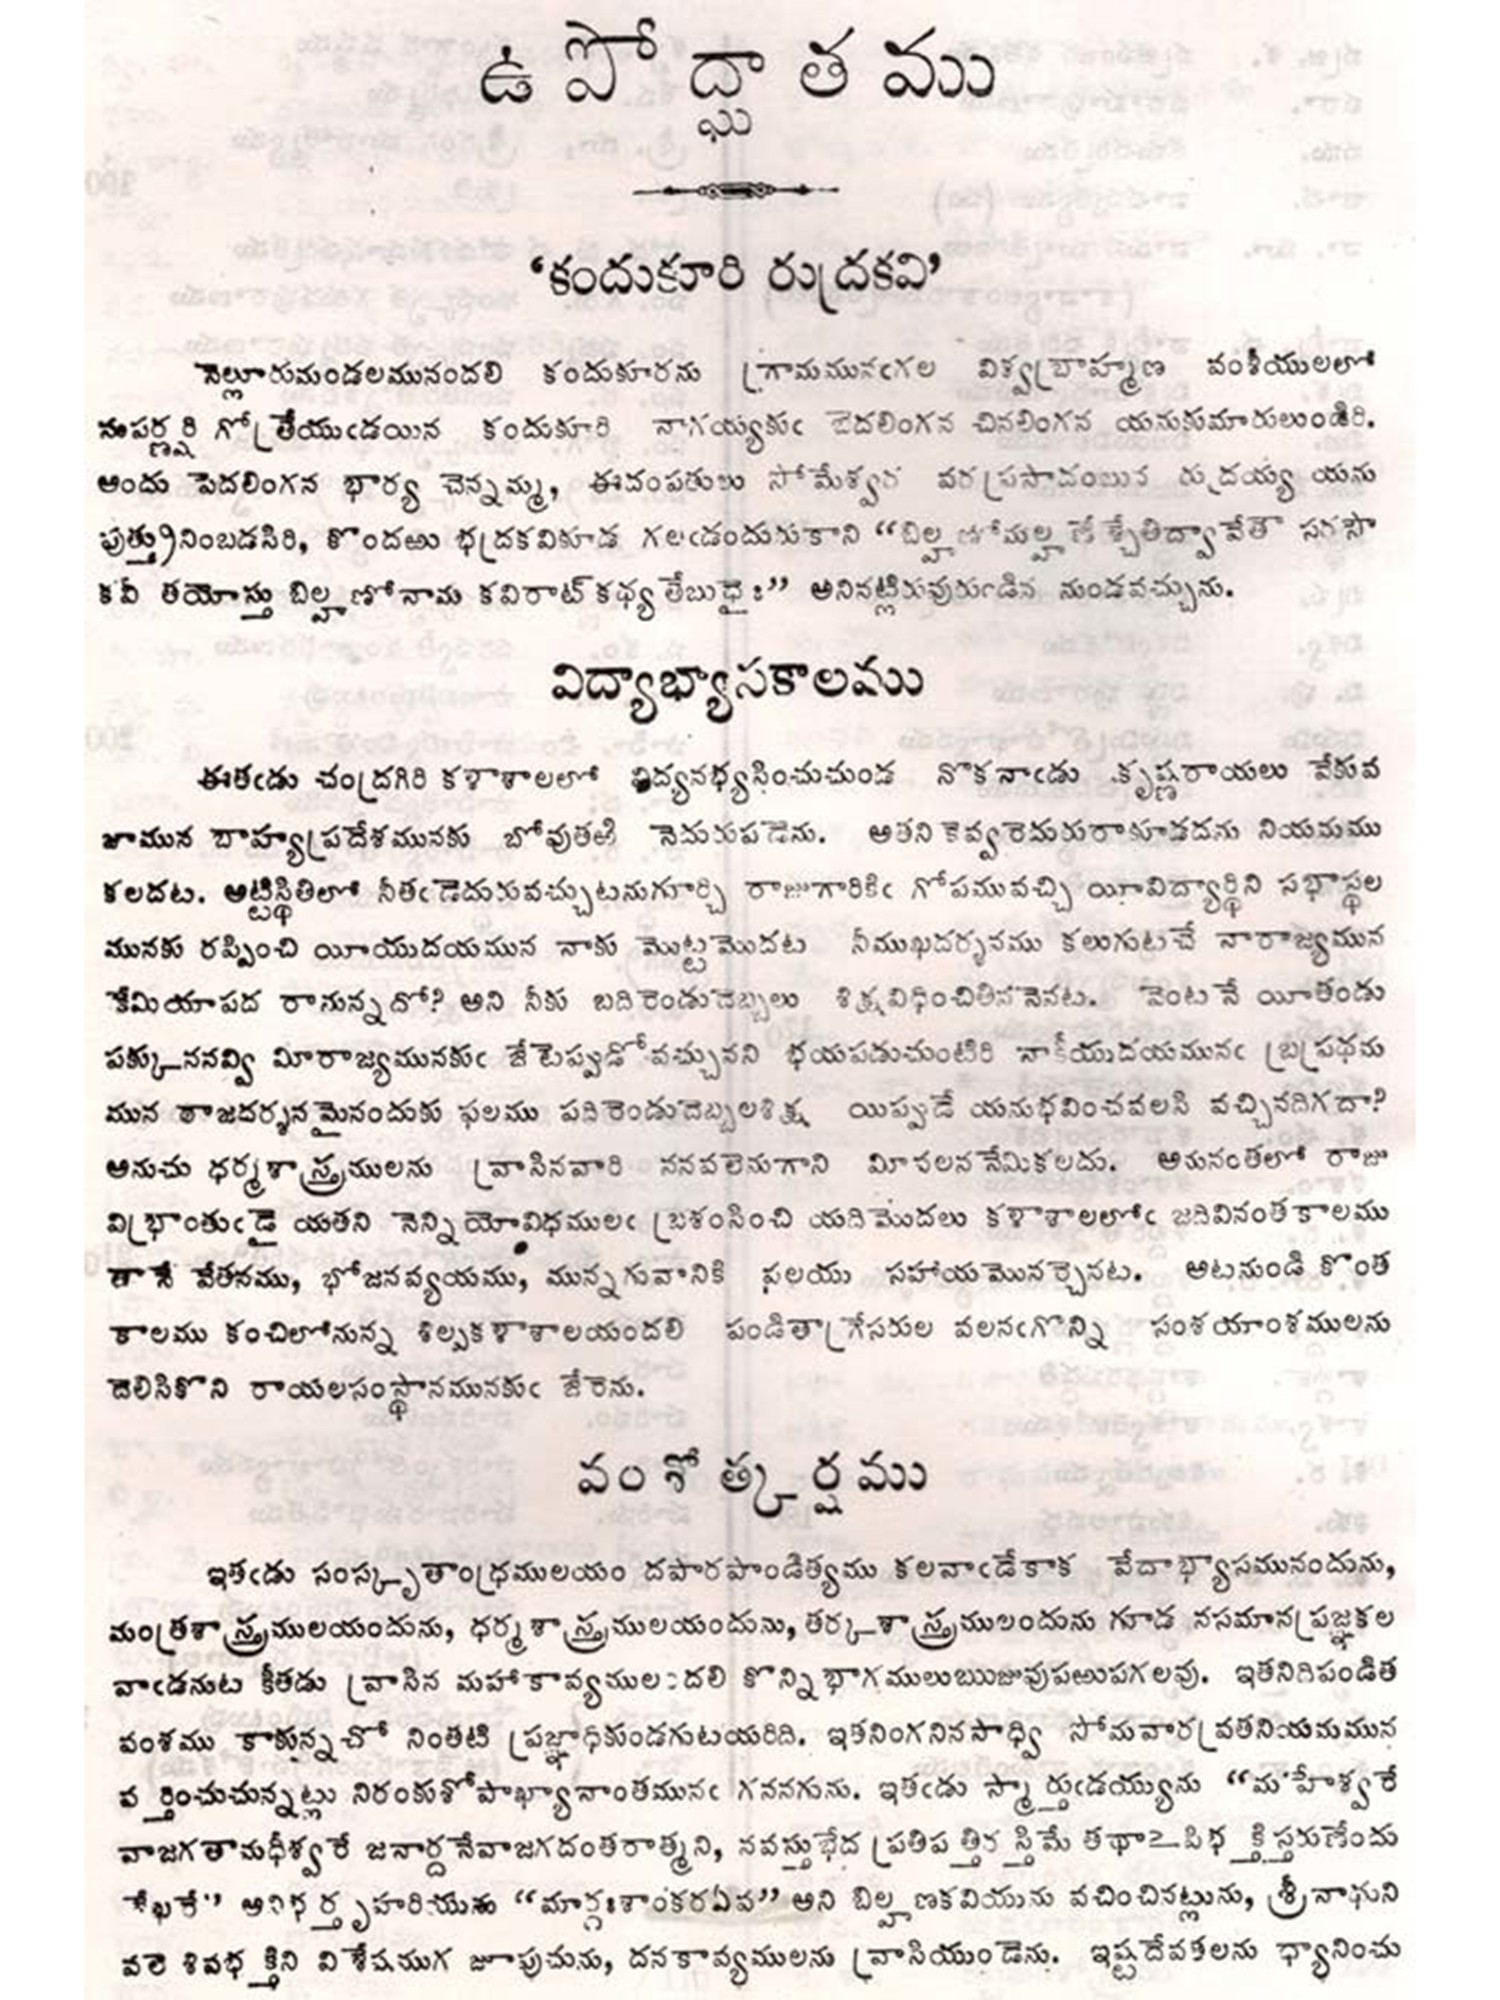 ఉపోద్ఘాతము
‘కందుకూరి రుద్రకవి’
నెల్లూరుమండలమునందలి కందుకూరను గ్రామమునఁగల విశ్వబ్రాహ్మణ వంశీయులలో
సుపర్ణర్షి గోత్రేయుఁడయిన కందుకూరి నాగయ్యకుఁ బెదలింగన చినలింగన యనుకుమారులుండిరి.
అందు పెదలింగన భార్య చెన్నమ్మ, ఈదంపతులు సోమేశ్వర వరప్రసాదంబున రుద్రయ్య యను
పుత్త్రునింబడసిరి, కొందఱు భద్రకవికూడ గలఁడందురుకాని “బిల్హణోమల్హణేశ్చేతిద్వావేతౌ సరసౌ
కవీ తయోస్తు బిల్హణోనామ కవిరాట్ కథ్యతేబుధైః” అనినట్లిరువురుఁడిన నుండవచ్చును.
విద్యాభ్యాసకాలము
ఈతఁడు చంద్రగిరి కళాశాలలో విద్యనభ్యసించుచుండ నొకనాఁడు కృష్ణరాయలు వేకువ
జామున బాహ్యప్రదేశమునకు బోవుతఱి నెదురుపడెను. అతని కెవ్వరెదురురాకూడదను నియమము
కలదట. అట్టిస్థితిలో నీతఁడెదురువచ్చుటనుగూర్చి రాజుగారికిఁ గోపమువచ్చి యీవిద్యార్థిని సభాస్థల
మునకు రప్పించి యీయుదయమున నాకు మొట్టమొదట నీముఖదర్శనము కలుగుటచే నారాజ్యమున
కేమియాపద రానున్నదో? అని నీకు బదిరెండుదెబ్బలు శిక్షవిధించితిననెనట. వెంటనే యీతండు
పక్కుననవ్వి మీరాజ్యమునకుఁ జేటెప్పుడోవచ్చునని భయపడుచుంటిరి నాకీయుదయమునఁ బ్రప్రథమ
మున రాజదర్శనమైనందుకు ఫలము పదిరెండుదెబ్బలశిక్ష యిప్పుడే యనుభవించవలసి వచ్చినదిగదా?
అనుచు ధర్మశాస్త్రములను వ్రాసినవారి ననవలెనుగాని మీవలననేమికలదు. అనునంతలో రాజు
విభ్రాంతుఁడై యతని నెన్నియోవిధములఁ బ్రశంసించి యదిమొదలు కళాశాలలోఁ జదివినంతకాలము
తానే వేతనము, భోజనవ్యయము, మున్నగువానికి వలయు సహాయమొనర్చెనట. అటనుండి కొంత
కాలము కంచిలోనున్న శిల్పకళాశాలయందలి పండితాగ్రేసరుల వలనఁగొన్ని సంశయాంశములను
దెలిసికొని రాయలసంస్థానమునకుఁ జేరెను.
వంశోత్కర్షము
ఇతఁడు సంస్కృతాంధ్రములయం దపారపాండిత్యము కలవాఁడేకాక వేదాభ్యాసమునందును,
మంత్రశాస్త్రములయందును, ధర్మశాస్త్రములయందును, తర్కశాస్త్రములందును గూడ నసమానప్రజ్ఞకల
వాఁడనుట కీతడు వ్రాసిన మహాకావ్యములందలి కొన్నిభాగములుఋజువుపఱుపగలవు. ఇతనిదిపండిత
వంశము కాకున్నచో నింతటి ప్రజ్ఞాధికుండగుటయరిది. ఇతనింగనినసాధ్వి సోమవారవ్రతనియమమున
వర్తించుచున్నట్లు నిరంకుశోపాఖ్యానాంతమునఁ గననగును. ఇతఁడు స్మార్తుఁడయ్యును “మహేశ్వరే
వాజగతామధీశ్వరే జనార్దనేవాజగదంతరాత్మని, నవస్తుభేద ప్రతిపత్తిరస్తిమే తథాఽపిభక్తిస్తరుణేందు
శేఖరే” అనిభర్తృహరియును “మార్గఃశాంకరఏవ” అని బిల్హణకవియును వచించినట్లును, శ్రీనాథుని
వలె శివభక్తిని విశేషముగ జూపుచును, దనకావ్యములను వ్రాసియుండెను. ఇష్టదేవతలను ధ్యానించు